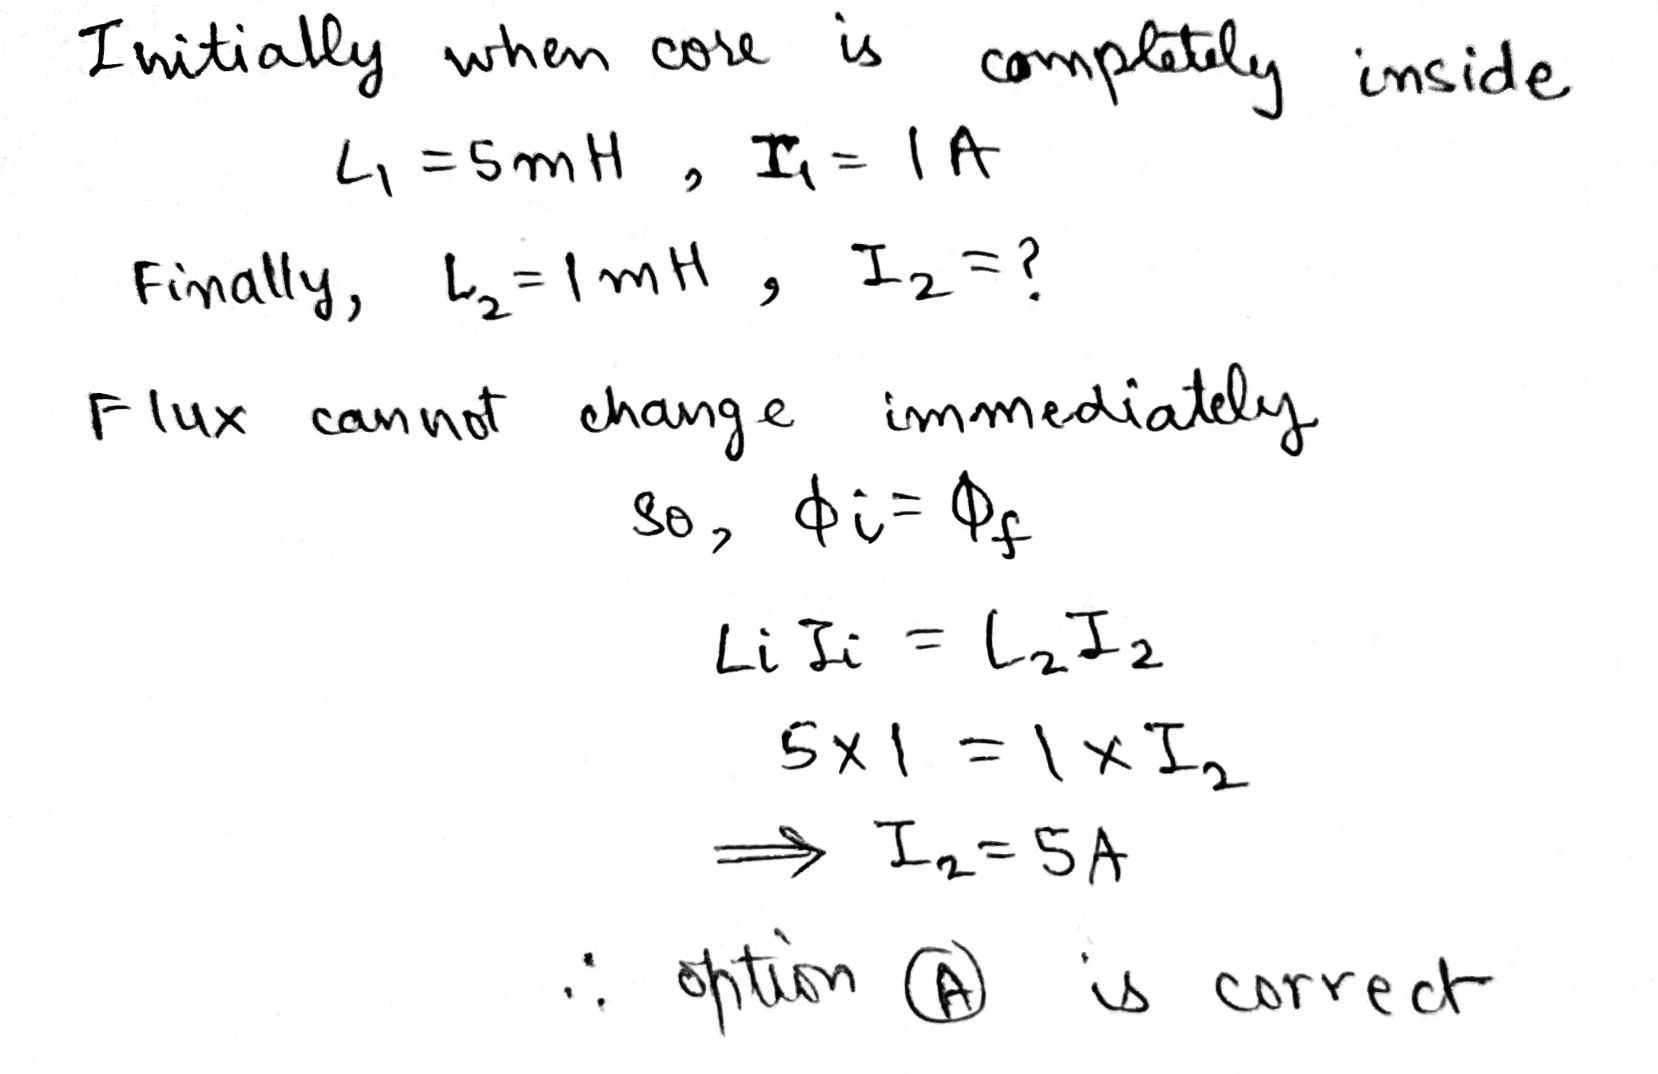 Initially when core is completely inside
L₁ = 5mH , I₁ = 1A
Finally, L₂ = 1mH , I₂ = ?
Flux cannot change immediately
so, ϕi = ϕf
Li Ii = L₂I₂
5×1 = 1×I₂
⟹ I₂ = 5A
∴ option Ⓐ is correct